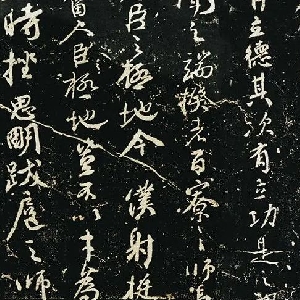 立德其次有立功是之
之端揆者百寮之師
臣之極地今僕射挺
當人臣極地豈不以才為
時挫思明跋扈之師